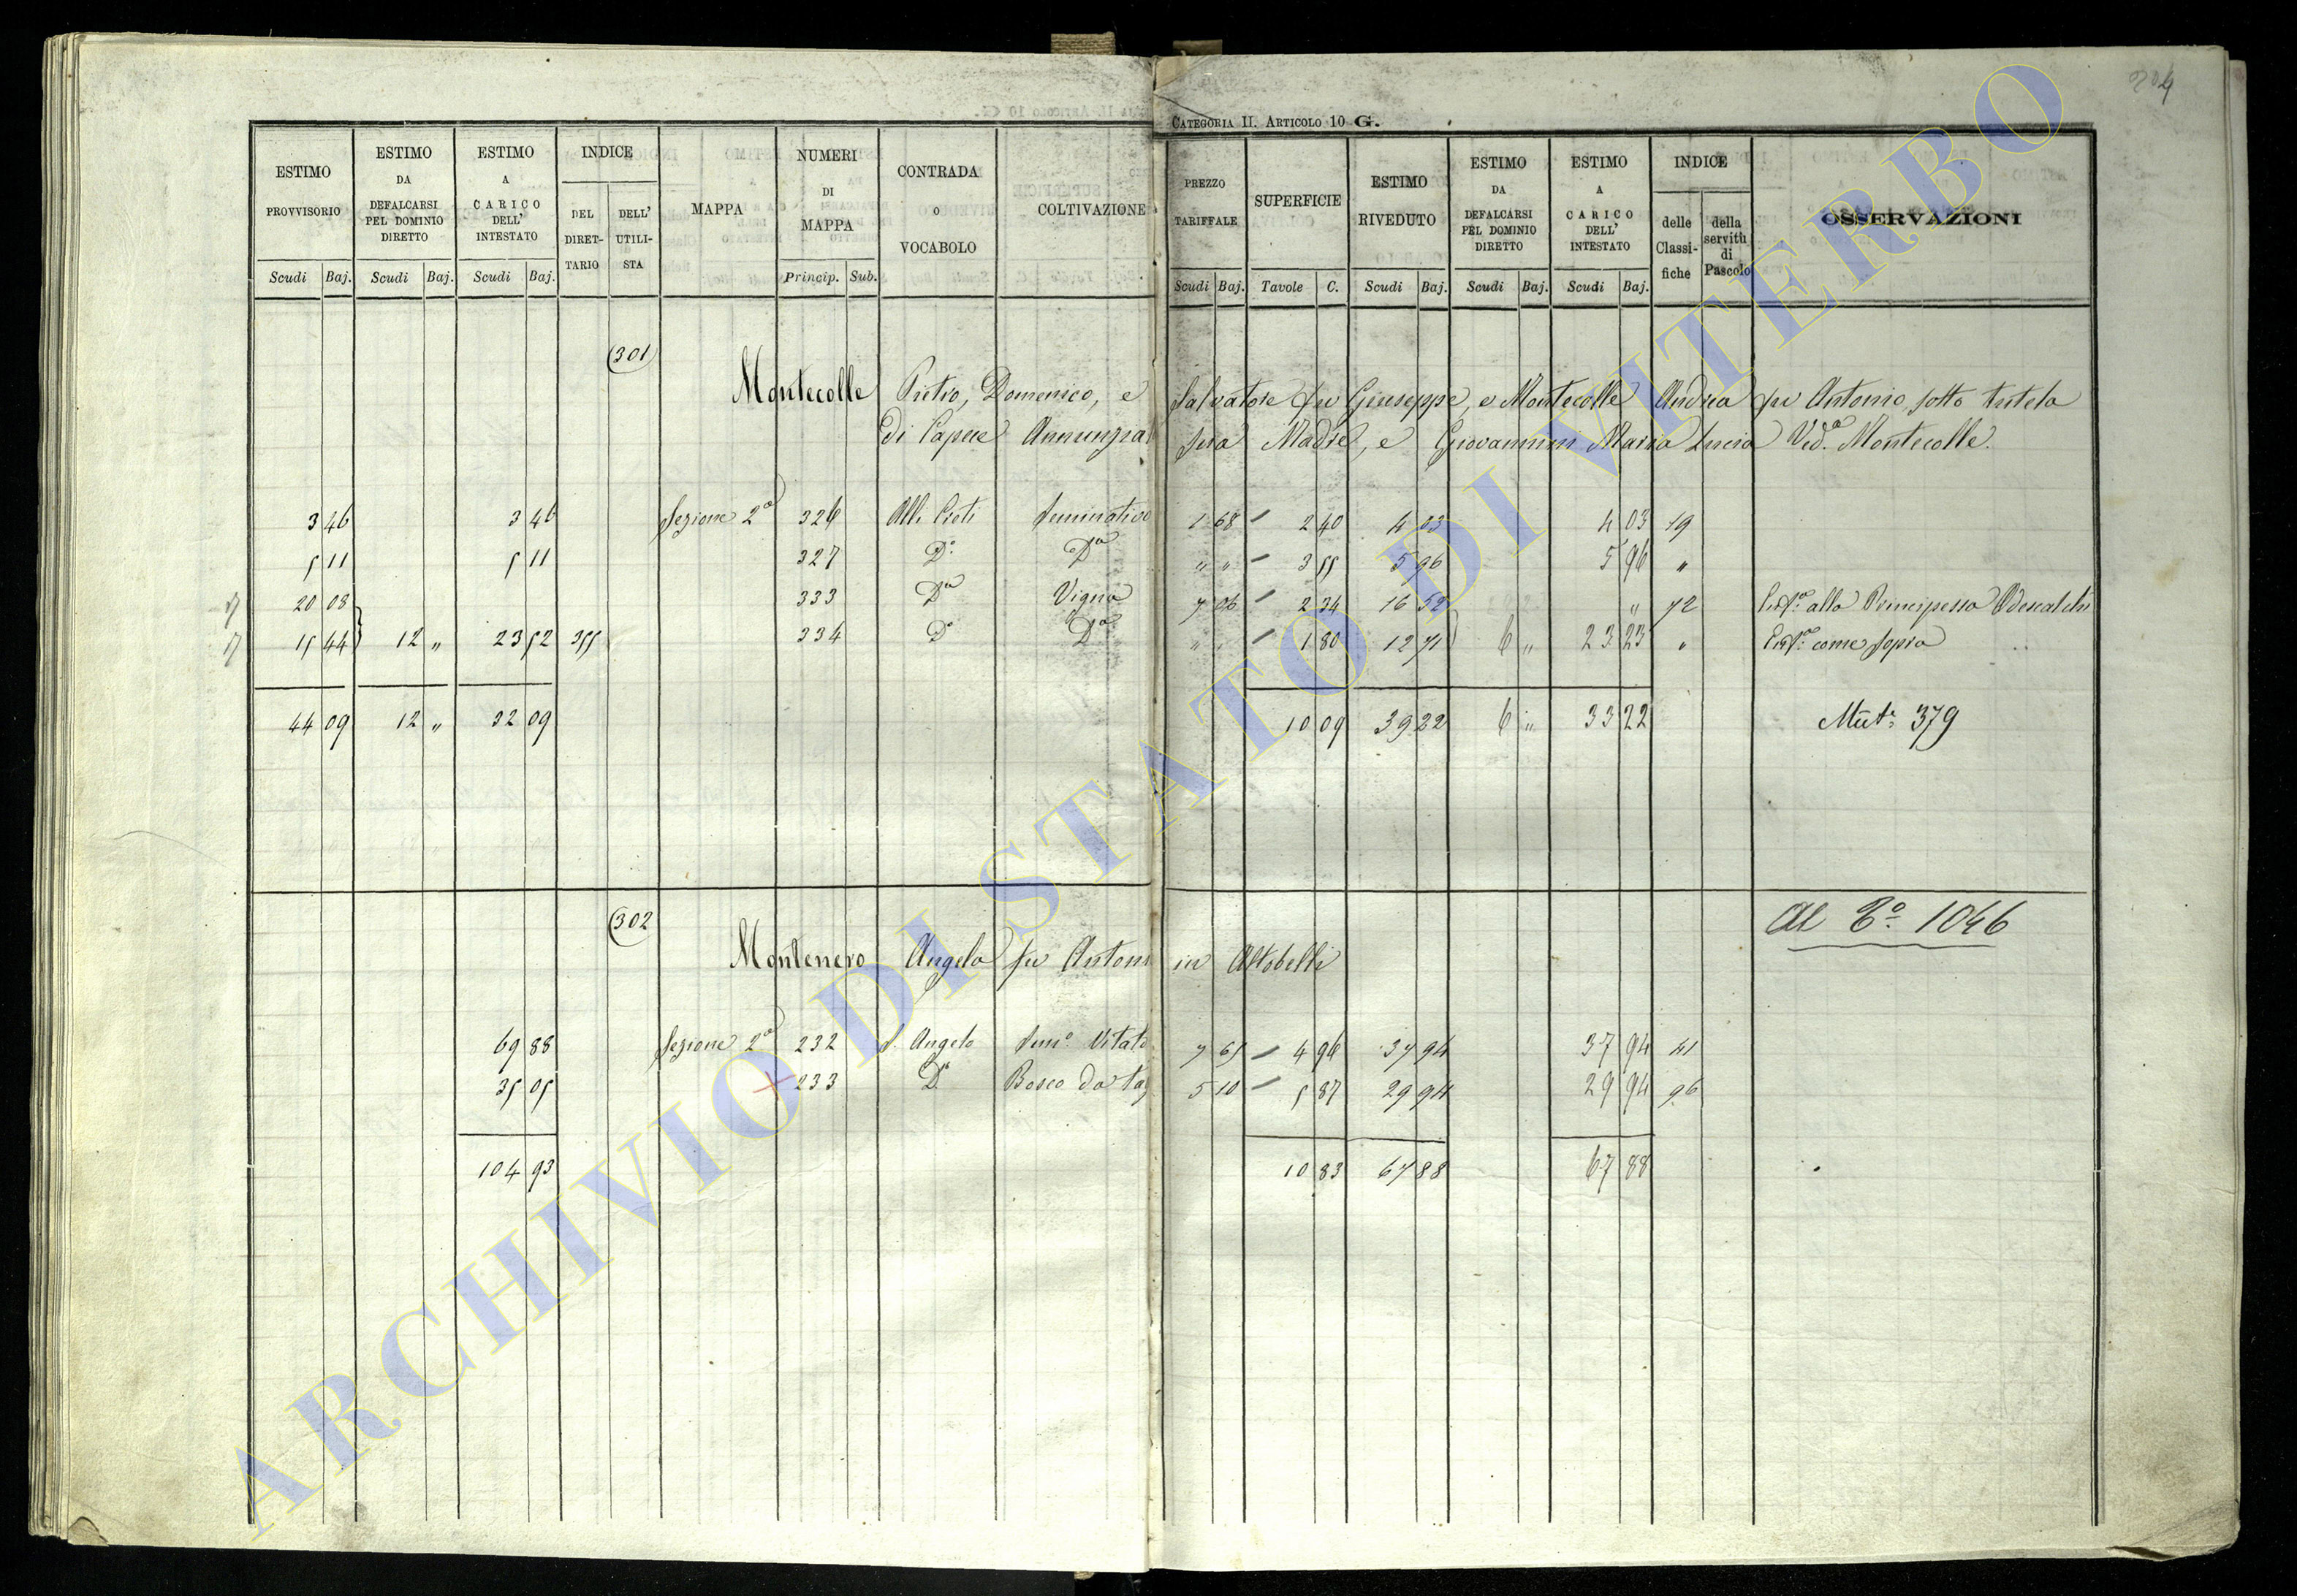 204
CATEGORIA II. ARTICOLO 10 G.
ESTIMO PROVVISORIO Scudi Baj.
ESTIMO DA DEFALCARSI PEL DOMINIO DIRETTO Scudi Baj.
ESTIMO A CARICO DELL' INTESTATO Scudi Baj.
INDICE DEL DIRET-TARIO DELL' UTILI-STA
MAPPA
NUMERI DI MAPPA Princip. Sub.
CONTRADA o VOCABOLO
COLTIVAZIONE
PREZZO TARIFFALE Scudi Baj.
SUPERFICIE Tavole C.
ESTIMO RIVEDUTO Scudi Baj.
ESTIMO DA DEFALCARSI PEL DOMINIO DIRETTO Scudi Baj.
ESTIMO A CARICO DELL' INTESTATO Scudi Baj.
INDICE delle Classi-fiche della servitù di Pascolo
OSSERVAZIONI
301
Montecolle Pietro, Domenico, e Salvatore fu Giuseppe, e Montecolle Andrea fu Antonio sotto tutela
di Annunzia sua Madre, e Giovannini Maria Lucia Ved.a Montecolle.
3 46 3 46 Sezione 2a 326 Seminativo 1 68 2 40 4 03 4 03 19
5 11 5 11 327 Do. Da „ „ 3 55 5 96 5 96 „
20 08 333 Da Vigna 7 06 2 34 16 52 „ 72 alla Principessa Odescalchi
15 44 12 „ 23 52 355 334 Do Da „ „ 1 80 12 71 6 „ 23 23 „ come sopra
44 09 12 „ 32 09 10 09 39 22 6 „ 33 22 Mut. 379
302
Al To. 1046
Montenero Angela fu Antoni in Altobelli
69 88 Sezione 2a 232 S. Angelo Semo. Vitato 7 65 4 96 37 94 37 94 41
35 05 233 Do Bosco da tag 5 10 5 87 29 94 29 94 96
104 93 10 83 67 88 67 88
ARCHIVIO DI STATO DI VITERBO